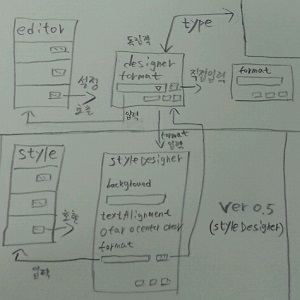 editor
동입력
type
designer
format
설정
호출
직접입력
format
입력
format
입력
style
styleDesigner
background
textAlignment
o far o center o har
format
호출
입력
Ver 0.5
(styleDesigner)